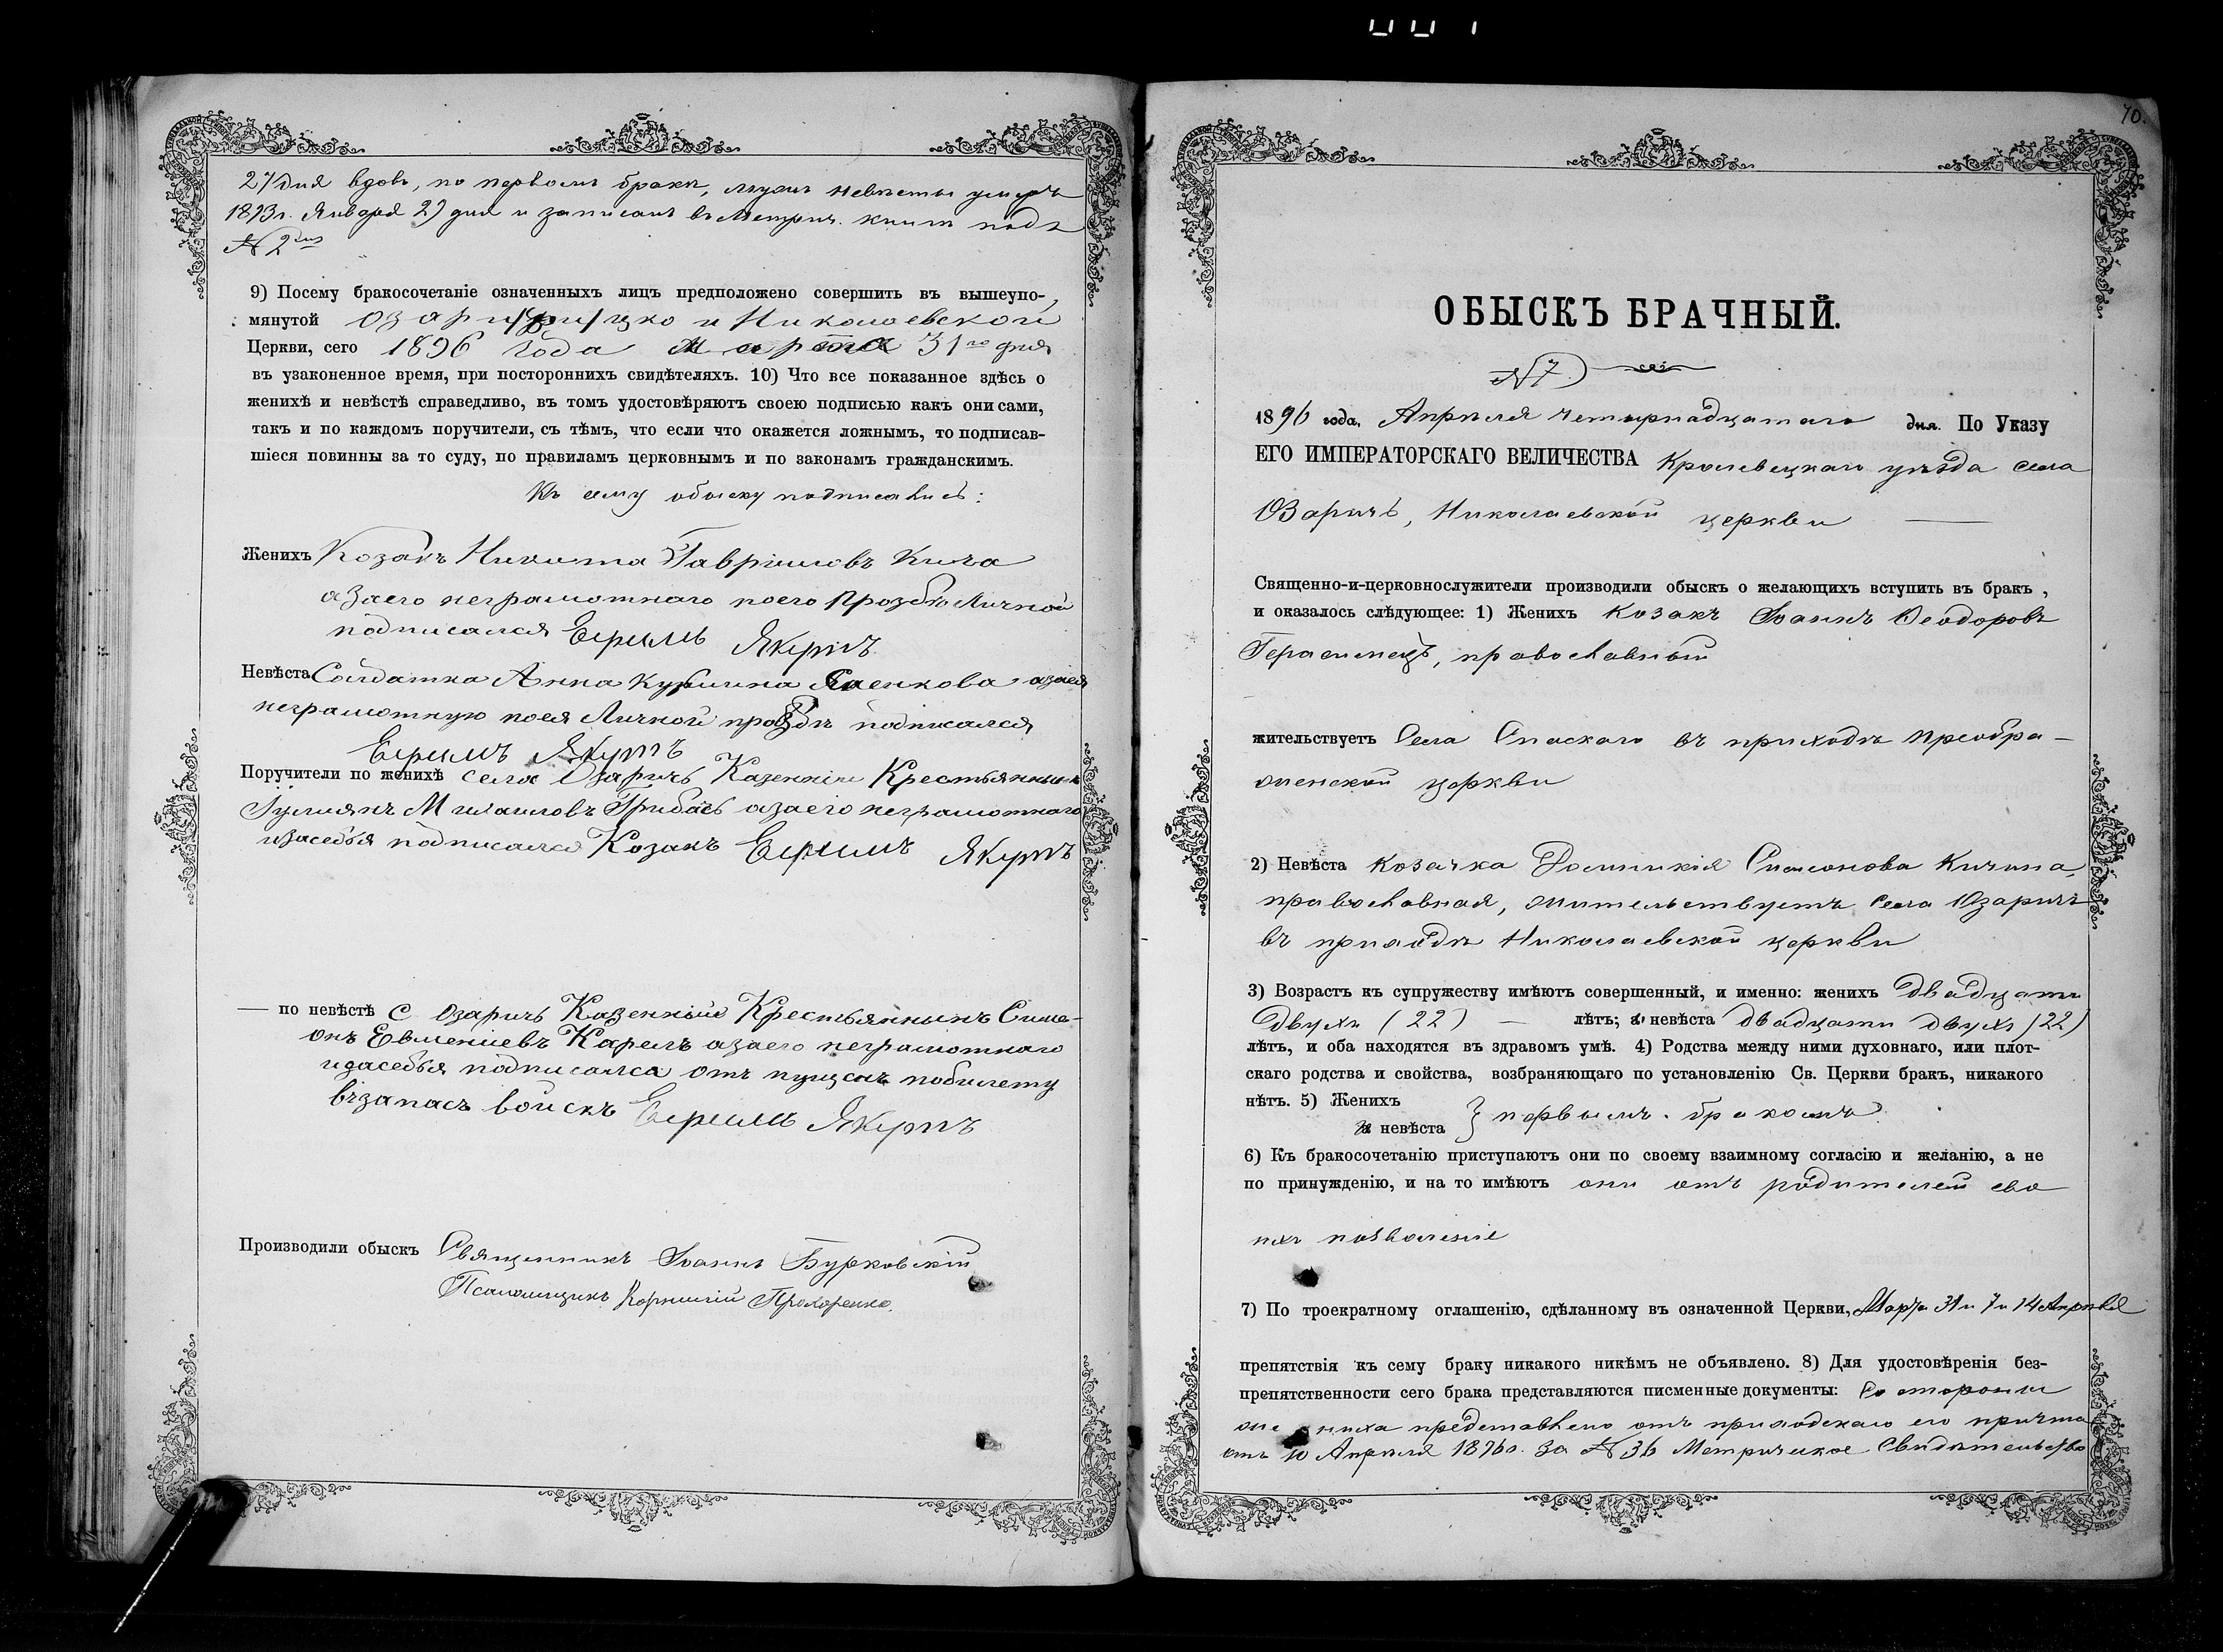 27 дня вдовъ, по первомъ бракѣ, мужъ невѣсты умеръ
1893 г. Января 27 дня и записанъ въ Метрич. книгѣ подъ
№ 2мъ
9) Посему бракосочетаніе означенныхъ лицъ предположено совершить въ вышеупо-
мянутой
Церкви, сего 1896 года Марта 31го дня
въ узаконенное время, при постороннихъ свидѣтеляхъ. 10) Что все показанное здѣсь о
женихѣ и невѣстѣ справедливо, въ томъ удостовѣряютъ своею подписью какъ они сами,
такъ и по каждомъ поручители, съ тѣмъ, что если что окажется ложнымъ, то подписав-
шіеся повинны за то суду, по правиламъ церковнымъ и по законамъ гражданскимъ.
Къ сему обыску подписались:
Женихъ Козакъ Никита Гавріиловъ Кича
азаего неграмотнаго поего прозбѣ Личной
подписался Ефимъ Якутъ
Невѣста Солдатка Анна азаея
неграмотную поея Личной прозбѣ подписался
Ефимъ Якутъ
Поручители по женихѣ села Озаричъ Казенній Крестьянинъ
Іулиянъ Михаиловъ Грибась азаего неграмотнаго
изасебья подписался Козакъ Ефимъ Якутъ
— по невѣстѣ С Озаричъ Казенный Крестьянинъ Симе-
онъ Евмениевъ Карель азаего неграмотнаго
изасебья подписался отъ пущенъ побилету
взапасъ войскъ Ефимъ Якутъ
Производили обыскъ Священникъ Іоаннъ Бурковскій
Псаломщикъ Корнилій Прохоренко.
70.
ОБЫСКЪ БРАЧНЫЙ.
№ 7
1896 года, Апрѣля четырнадцатаго дня. По Указу
ЕГО ИМПЕРАТОРСКАГО ВЕЛИЧЕСТВА Кролевецкаго уѣзда села
Озаричъ, Николаевской церкви
Священно-и-церковнослужители производили обыскъ о желающихъ вступить въ бракъ,
и оказалось слѣдующее: 1) Женихъ козакъ Іоаннъ Ѳеодоровъ
Герасимецъ, православный
жительствуетъ Села Спаскаго въ приходѣ Преобра-
женской церкви
2) Невѣста козачка Домникія Симеонова Кичина,
православная, жительствуетъ села Озаричъ
въ приходѣ Николаевской церкви
3) Возрастъ къ супружеству имѣютъ совершенный, и именно: женихъ двадцать
двухъ (22) — лѣтъ; а невѣста двадцати двухъ (22)
лѣтъ, и оба находятся въ здравомъ умѣ. 4) Родства между ними духовнаго, или плот-
скаго родства и свойства, возбраняющаго по установленію Св. Церкви бракъ, никакого
нѣтъ. 5) Женихъ
и невѣста } первымъ бракомъ
6) Къ бракосочетанію приступаютъ они по своему взаимному согласію и желанію, а не
по принужденію, и на то имѣютъ они отъ родителей сво
ихъ позволеніе
7) По троекратному оглашенію, сдѣланному въ означенной Церкви, Марта 31 и 7 и 14 Апрѣля
препятствія къ сему браку никакого никѣмъ не объявлено. 8) Для удостовѣренія без-
препятственности сего брака представляются писменные документы: Со стороны
жениха представлено отъ приходскаго его причта
отъ 10 Апрѣля 1896 г. За № 36 Метрическое Свидѣтельство